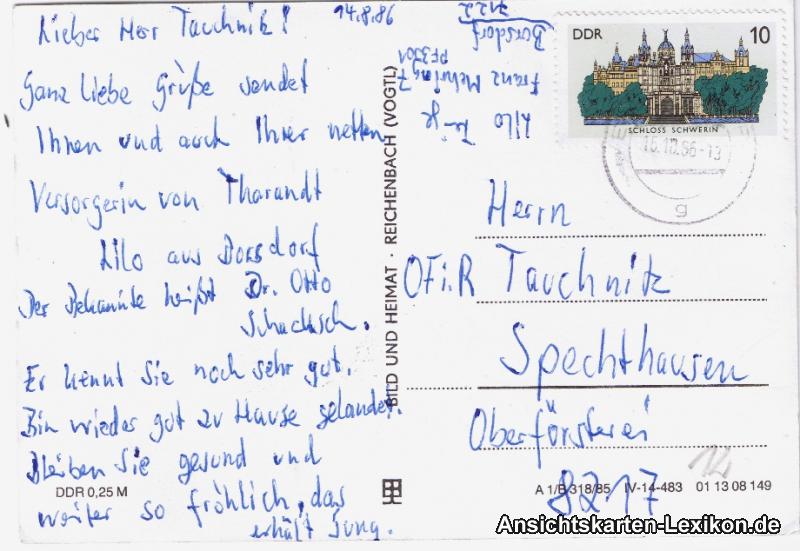 Lieber Herr Tauchnitz!
Ganz liebe Grüße sendet
Ihnen und auch Ihrer netten
Versorgerin von Tharandt
Lilo aus Borsdorf
Der Bekannte heißt Dr. Otto
Schacksch.
Er kennt Sie noch sehr gut.
Bin wieder gut zu Hause gelandet.
Bleiben Sie gesund und
weiter so fröhlich, das
erhält jung.
DDR 0,25 M
BILD UND HEIMAT · REICHENBACH (VOGTL)
7122
Borsdorf
PF 3301
Franz Mehring 7
Lilo
DDR 10
SCHLOSS SCHWERIN
86-13
g
Herrn
OFi.R Tauchnitz
Spechthausen
Oberförsterei
8217
12
A 1/B 318/85 IV-14-483 01 13 08 149
Ansichtskarten-Lexikon.de